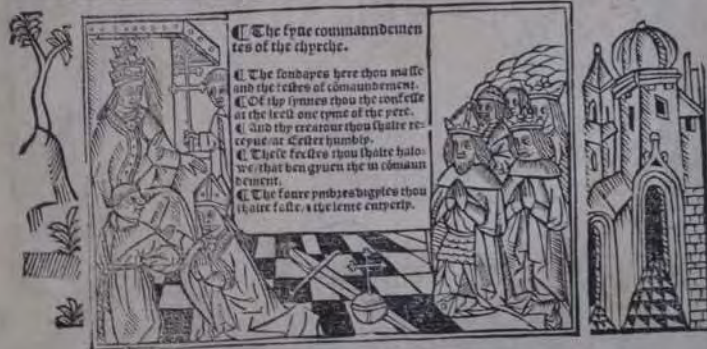 ¶ The fyue commaundemen
tes of the chyrche.
¶ The sondayes here thou masse
and the festes of cōmaundement.
¶ Of thy synnes thou the confesse
at the leest one tyme of the yere.
¶ And thy creatour thou shalte re-
ceyue/at Eester humbly.
¶ These feestes thou shalte halo-
we/that ben gyuen the in cōmaun
dement.
¶ The foure ymbres vigyles thou
shalte faste, & the lente entyerly.